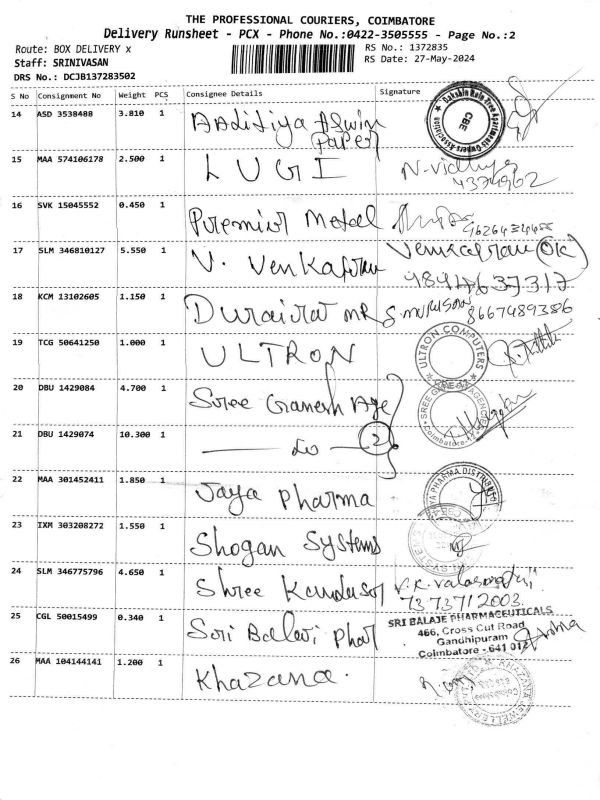 THE PROFESSIONAL COURIERS, COIMBATORE
Delivery Runsheet - PCX - Phone No.:0422-3505555 - Page No.:2
Route: BOX DELIVERY x RS No.: 1372835
Staff: SRINIVASAN RS Date: 27-May-2024
DRS No.: DCJB137283502
S No Consignment No Weight PCS Consignee Details Signature
14 ASD 3538488 3.810 1 AAditiya Aswin
Paper
CBE
15 MAA 574106178 2.500 1 LUGI N. Vidhya
4374962
16 SVK 15045552 0.450 1 Premier Metal
17 SLM 346810127 5.550 1 V. Venkatram Venkatram (OK)
9844637317
18 KCM 13102605 1.150 1 Durairaj MR S. Murugan
8667489386
19 TCG 50641250 1.000 1 ULTRON ULTRON COMPUTERS
20 DBU 1429084 4.700 1 Sree Ganesh Age SREE GANESH AGENCIES
Coimbatore
21 DBU 1429074 10.300 1 — do — 2
22 MAA 301452411 1.850 1 Jaya Pharma JAYA PHARMA DISTRIBUTORS
23 IXM 303208272 1.550 1 Shogan Systems
24 SLM 346775796 4.650 1 Shree Kandasa V.K.
7373712003
25 CGL 50015499 0.340 1 Sri Balaji Phar SRI BALAJE PHARMACEUTICALS
466, Cross Cut Road
Gandhipuram
Coimbatore - 641 012
26 MAA 104144141 1.200 1 Khazana. KHAZANA JEWELLERY